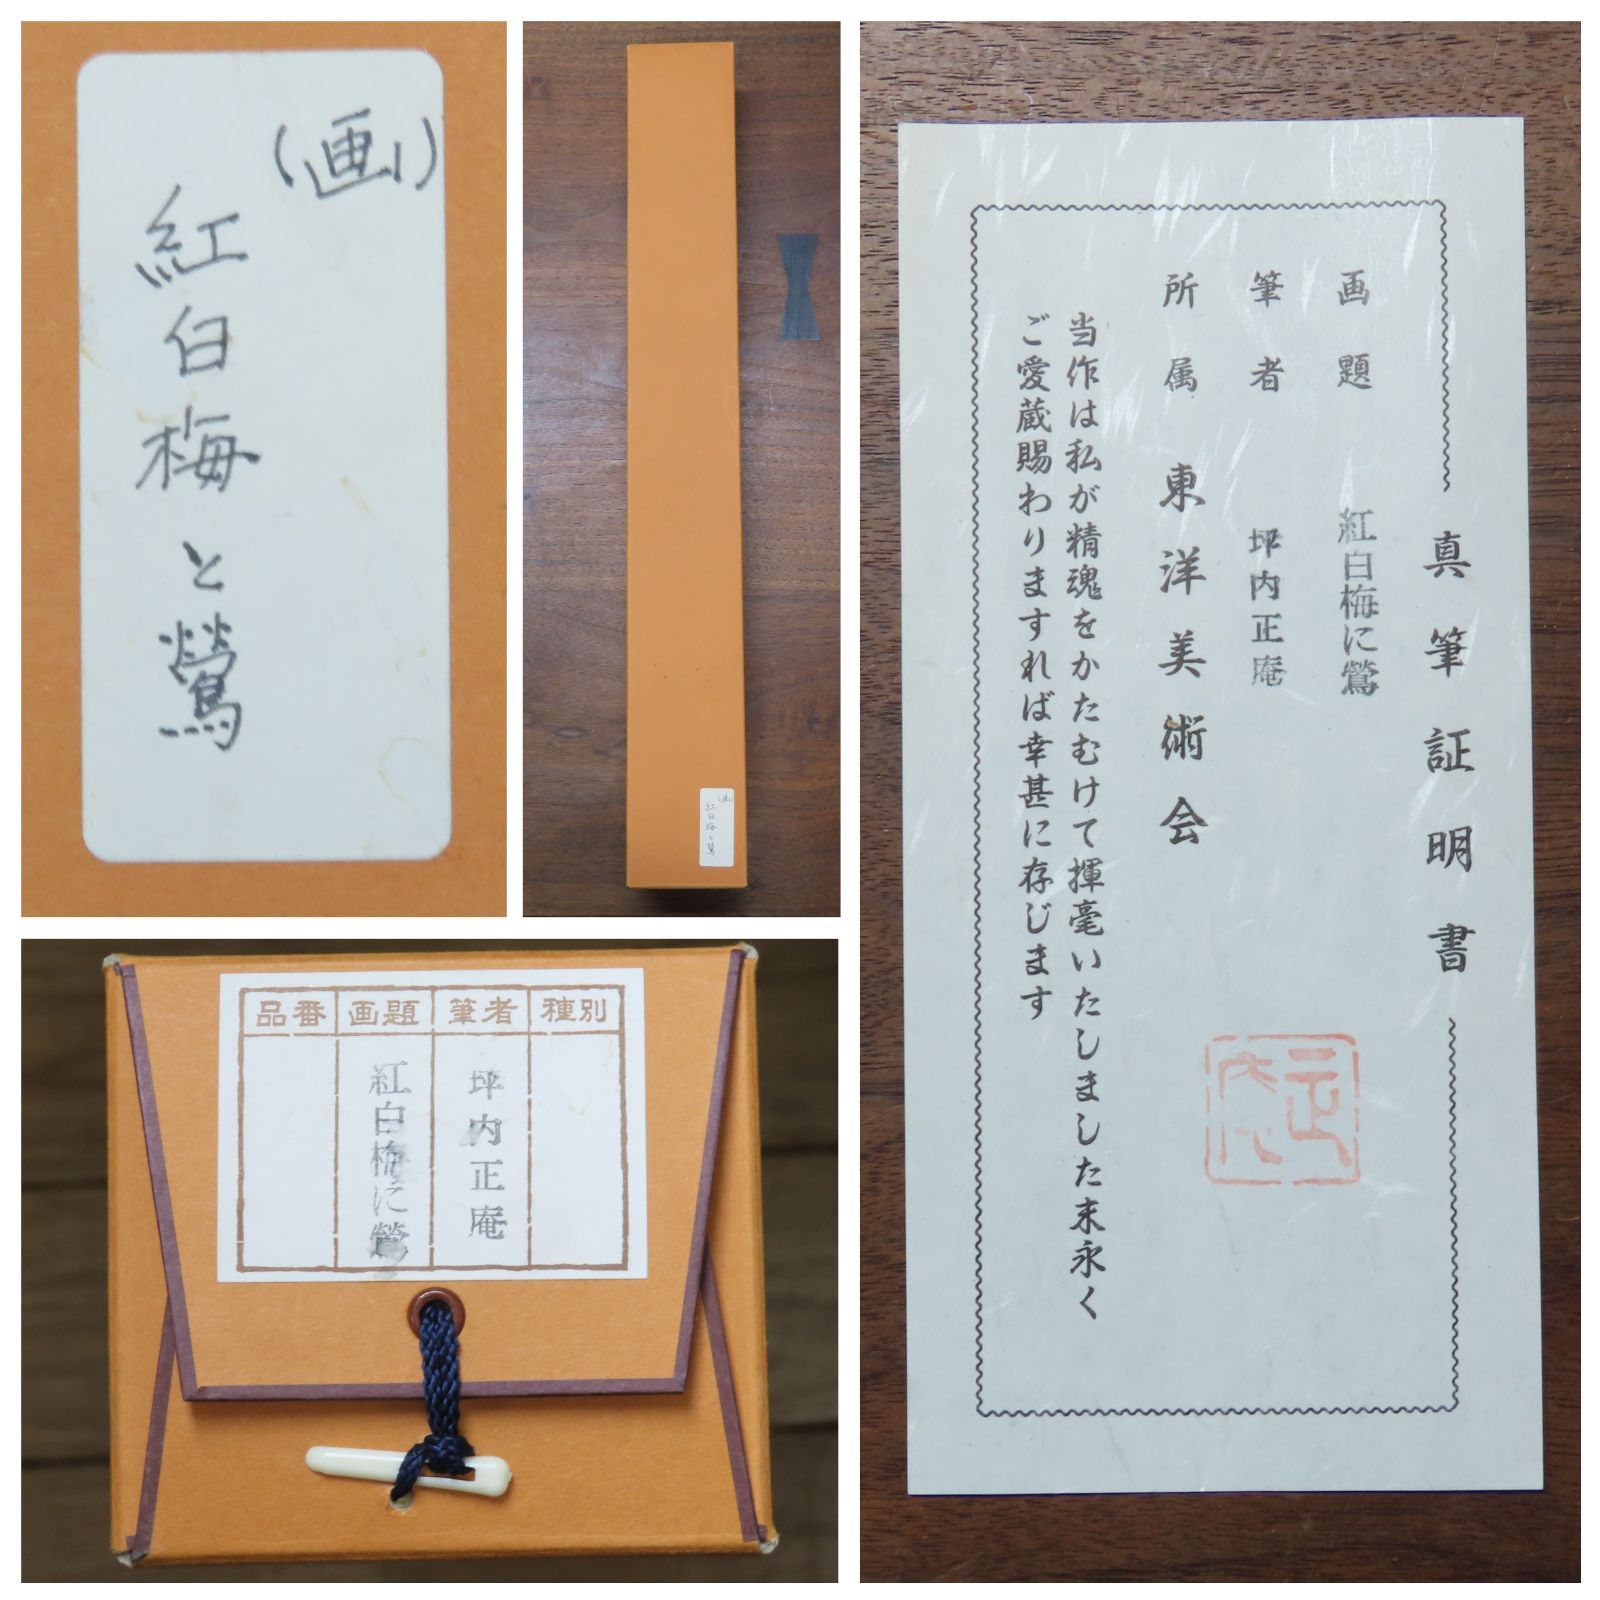 (画)
紅白梅と鶯
(画)
紅白梅と鶯
真筆証明書
画題 紅白梅に鶯
筆者 坪内正庵
所属 東洋美術会
当作は私が精魂をかたむけて揮毫いたしました末永く
ご愛蔵賜わりますれば幸甚に存じます
種別
筆者
坪内正庵
画題
紅白梅に鶯
品番